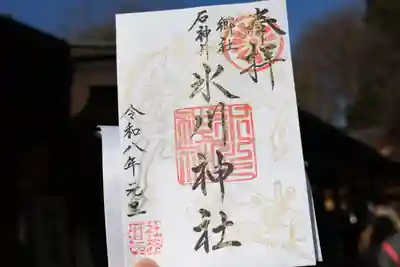 奉拝
郷社
石神井
氷川神社
令和八年元旦